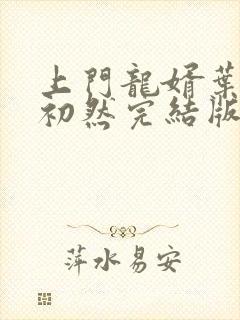 上門龍婿葉
初然完結版
萍水易安